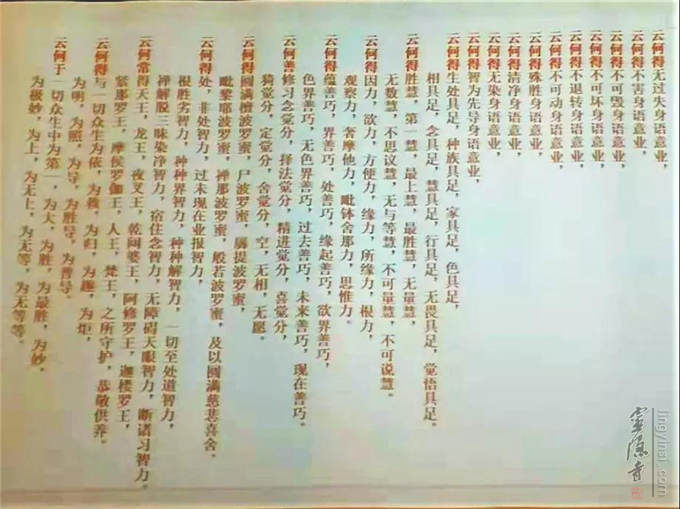 云何得无过失身语意业，
云何得不害身语意业，
云何得不可毁身语意业，
云何得不可坏身语意业，
云何得不退转身语意业，
云何得不可动身语意业，
云何得殊胜身语意业，
云何得清净身语意业，
云何得无染身语意业，
云何得智为先导身语意业，
云何得生处具足，种族具足，家具足，色具足，
相具足，念具足，慧具足，行具足，无畏具足，觉悟具足。
云何得胜慧，第一慧，最上慧，最胜慧，无量慧，
无数慧，不思议慧，无与等慧，不可量慧，不可说慧。
云何得因力，欲力，方便力，缘力，所缘力，根力，
观察力，奢摩他力，毗钵舍那力，思惟力。
云何得蕴善巧，界善巧，处善巧，缘起善巧，欲界善巧，
色界善巧，无色界善巧，过去善巧，未来善巧，现在善巧。
云何善修习念觉分，择法觉分，精进觉分，喜觉分，
猗觉分，定觉分，舍觉分，空，无相，无愿。
云何得圆满檀波罗蜜，尸波罗蜜，羼提波罗蜜，
毗黎耶波罗蜜，禅那波罗蜜，般若波罗蜜，及以圆满慈悲喜舍。
云何得处，非处智力，过未现在业报智力，
根胜劣智力，种种界智力，种种解智力，一切至处道智力，
禅解脱三昧染净智力，宿住念智力，无障碍天眼智力，断诸习智力。
云何常得天王，龙王，夜叉王，乾闼婆王，阿修罗王，迦楼罗王，
紧那罗王，摩侯罗伽王，人王，梵王，之所守护，恭敬供养。
云何得与一切众生为依，为救，为归，为趣，为炬，
为明，为照，为导，为胜导，为普导，
云何于一切众生中为第一，为大，为胜，为最胜，为妙，
为极妙，为上，为无上，为无等，为无等等。
灵隐寺
lingyinsi.com